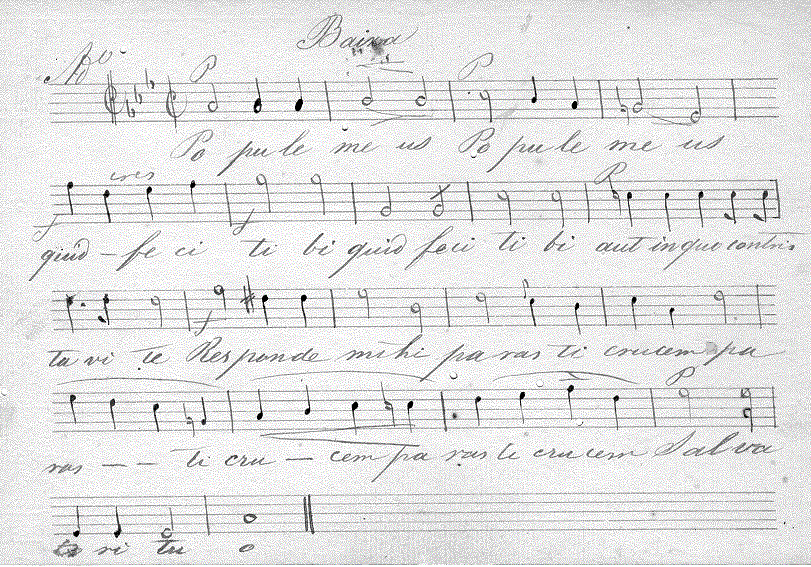 Baixa
P P
Po pu le me us Po pu le me us
cres P
quid - fe ci ti bi quid feci ti bi aut in quo contris
f f
ta vi te Responde mihi pa ras ti crucem pa
f
P
ras - - ti cru - cem pa ras ti cru cem Salva
to ri tu o